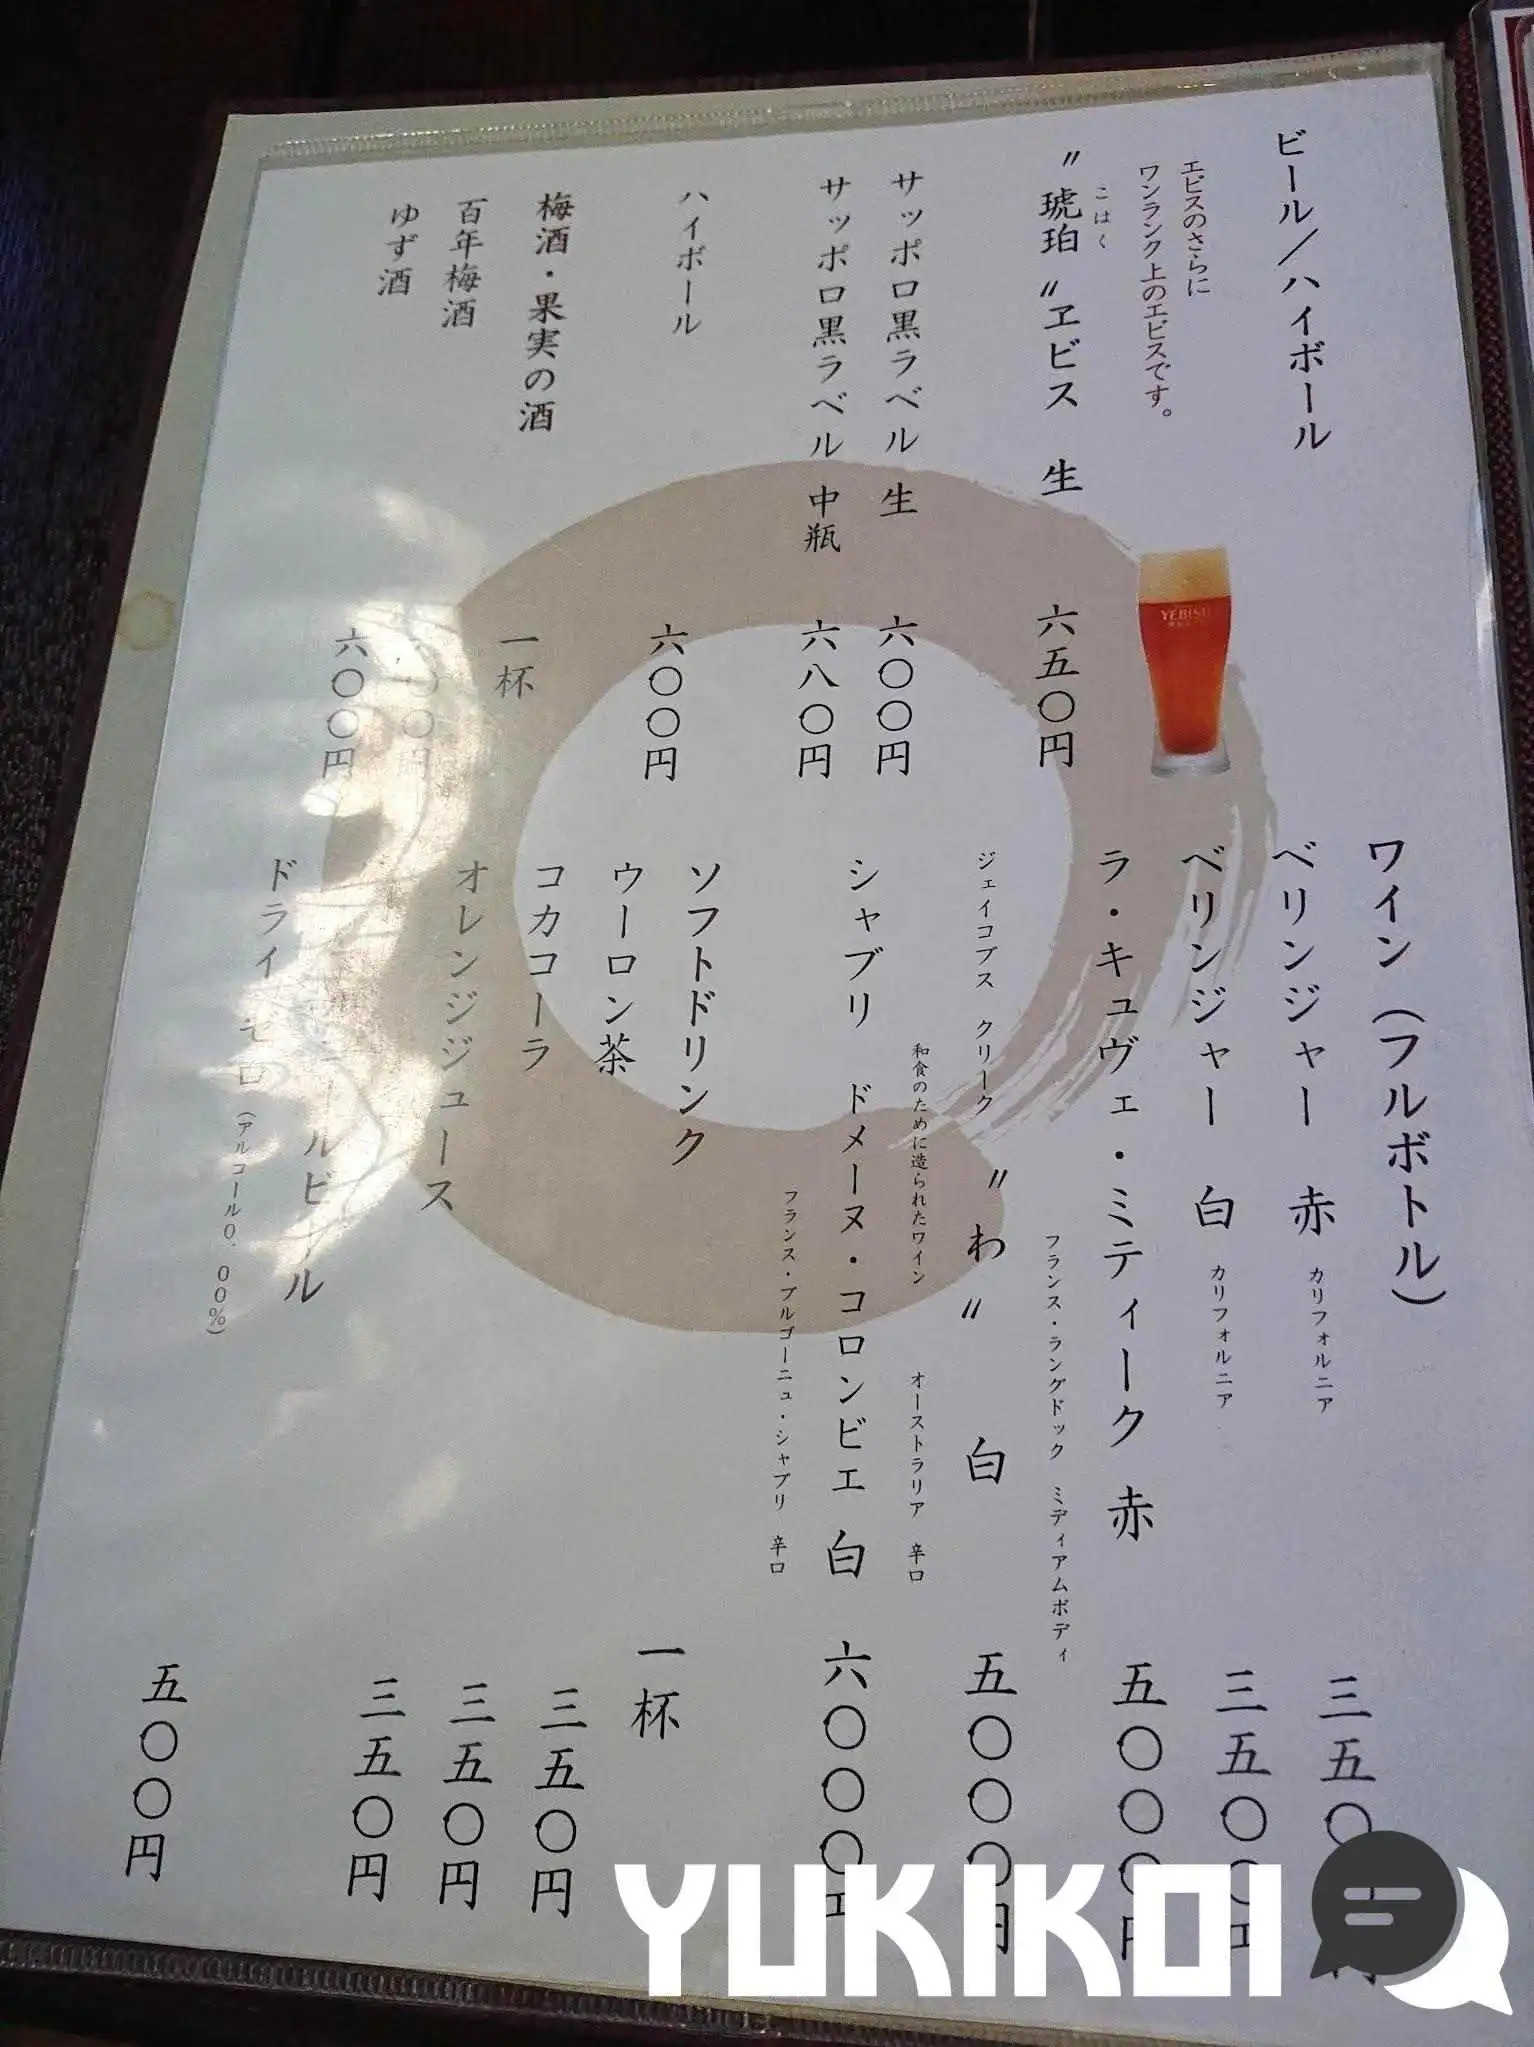 ビール／ハイボール
エビスのさらに
ワンランク上のエビスです。
こはく
〃琥珀〃ヱビス 生 六五〇円
サッポロ黒ラベル 生 六〇〇円
サッポロ黒ラベル 中瓶 六八〇円
ハイボール 六〇〇円
梅酒・果実の酒 一杯
百年梅酒 〇〇円
ゆず酒 六〇〇円
YEBISU
ワイン（フルボトル）
ベリンジャー 赤 カリフォルニア 三五〇
ベリンジャー 白 カリフォルニア 三五〇〇円
ラ・キュヴェ・ミティーク 赤 五〇〇〇円
フランス・ラングドック ミディアムボディ
ジェイコブス クリーク 〃わ〃 白 五〇〇〇円
和食のために造られたワイン オーストラリア 辛口
シャブリ ドメーヌ・コロンビエ 白 六〇〇〇円
フランス・ブルゴーニュ・シャブリ 辛口
ソフトドリンク 一杯
ウーロン茶 三五〇円
コカコーラ 三五〇円
オレンジジュース 三五〇円
ールビール
ドライゼロ（アルコール0．00％） 五〇〇円
YUKIKOI